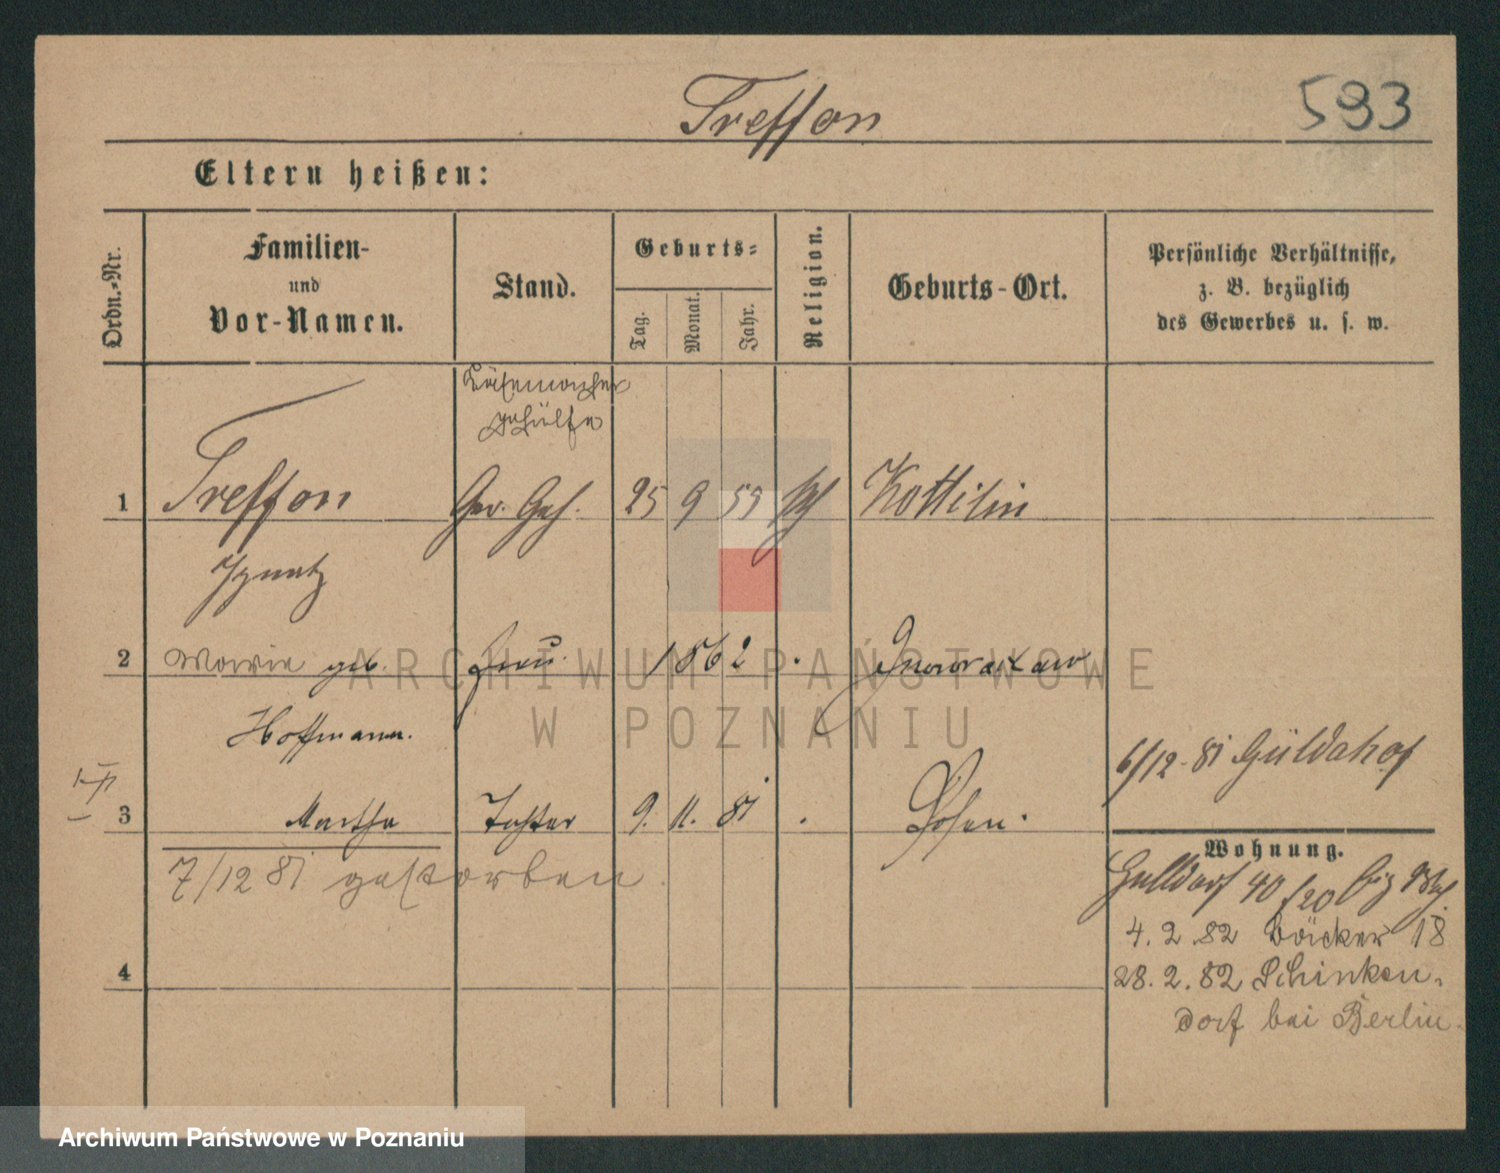 Treffon
593
Eltern heißen:
Ordn.-Nr.
Familien-
und
Vor-Namen.
Stand.
Geburts-
Tag.
Monat.
Jahr.
Religion.
Geburts-Ort.
Persönliche Verhältnisse,
z. B. bezüglich
des Gewerbes u. s. w.
Käsemacher
gehülfe
1 Treffon 25 9 59
Ignatz
2 Marie geb. Frau 1862 Inowraclaw
Hoffmann.
6/12 81
3 Martha Tochter 9. 11. 81 Posen.
7/12 81 gestorben
Wohnung.
40
4. 2. 82 Bäcker 18
28. 2. 82 Schinken-
dorf bei Berlin.
4
ARCHIWUM PAŃSTWOWE
W POZNANIU
Archiwum Państwowe w Poznaniu